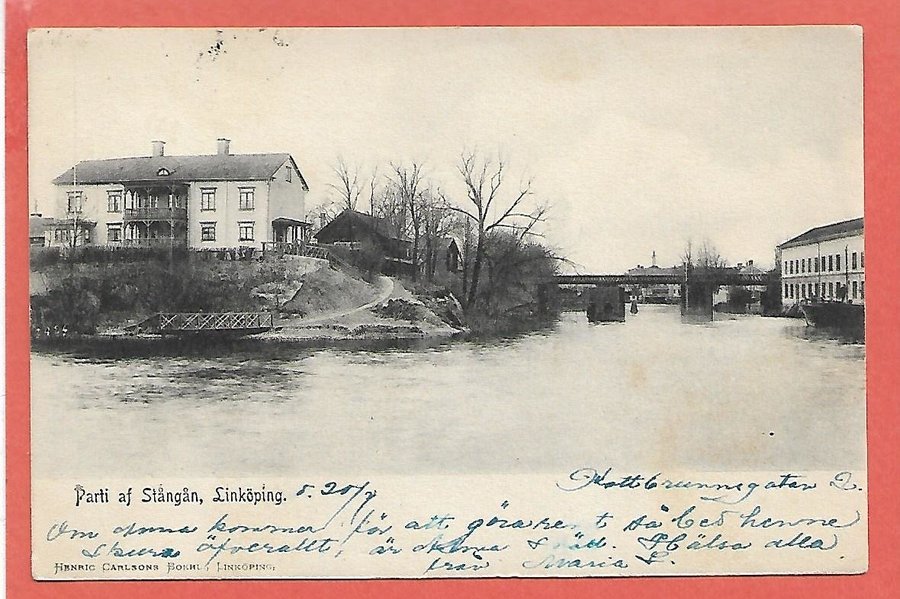 Parti af Stångån, Linköping. d. 20/7
Kottbrunnsgatan 2.
Om Anna kommer för att göra rent så bed henne
skura öfverallt, är Anna snäll. Hälsa alla
från Maria L.
HENRIC CARLSONS BOKHL, LINKÖPING.